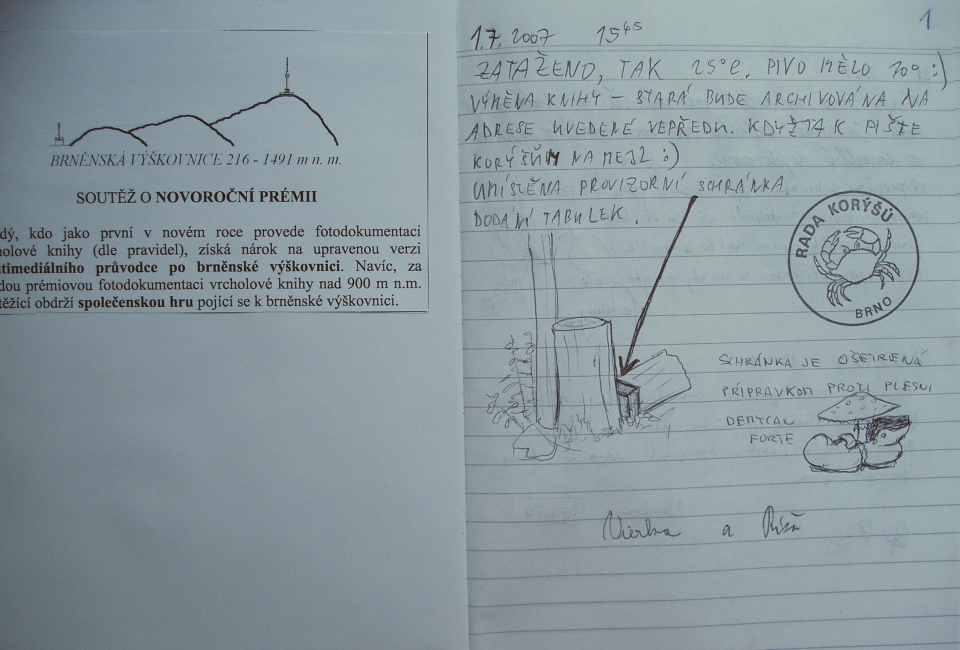 BRNĚNSKÁ VÝŠKOVNICE 216 - 1491 m n. m.
SOUTĚŽ O NOVOROČNÍ PRÉMII
dý, kdo jako první v novém roce provede fotodokumentaci
cholové knihy (dle pravidel), získá nárok na upravenou verzi
ltimediálního průvodce po brněnské výškovnici. Navíc, za
dou prémiovou fotodokumentaci vrcholové knihy nad 900 m n.m.
těžící obdrží společenskou hru pojící se k brněnské výškovnici.
1
1.7. 2007 15 45
ZATAŽENO, TAK 25°C. PIVO MĚLO 10° :)
VÝMĚNA KNIHY – STARÁ BUDE ARCHIVOVÁNA NA
ADRESE UVEDENÉ VEPŘEDU. KDYŽTAK PIŠTE
KORÝŠŮM NA MEJL :)
UMÍSTĚNA PROVIZORNÍ SCHRÁNKA.
DODÁNÍ TABULEK.
RADA KORÝŠŮ
BRNO
SCHRÁNKA JE OŠETŘENÁ
PŘÍPRAVKOM PROTI PLESNI
FORTE
a